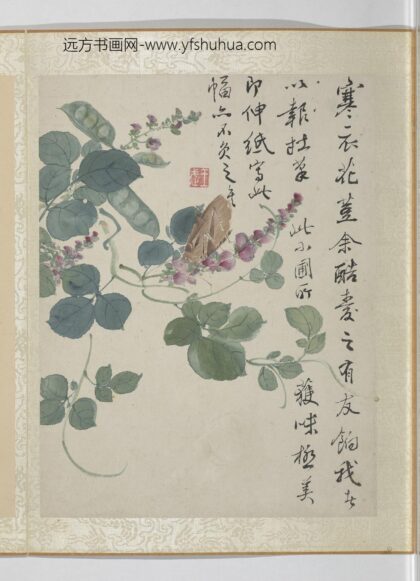 远方书画网-www.yfshuhua.com
寒衣花荳余酷愛之有友餉我者
以報拙筆 此小圃所 獲味極美
即伸紙寫此
幅亦不負之